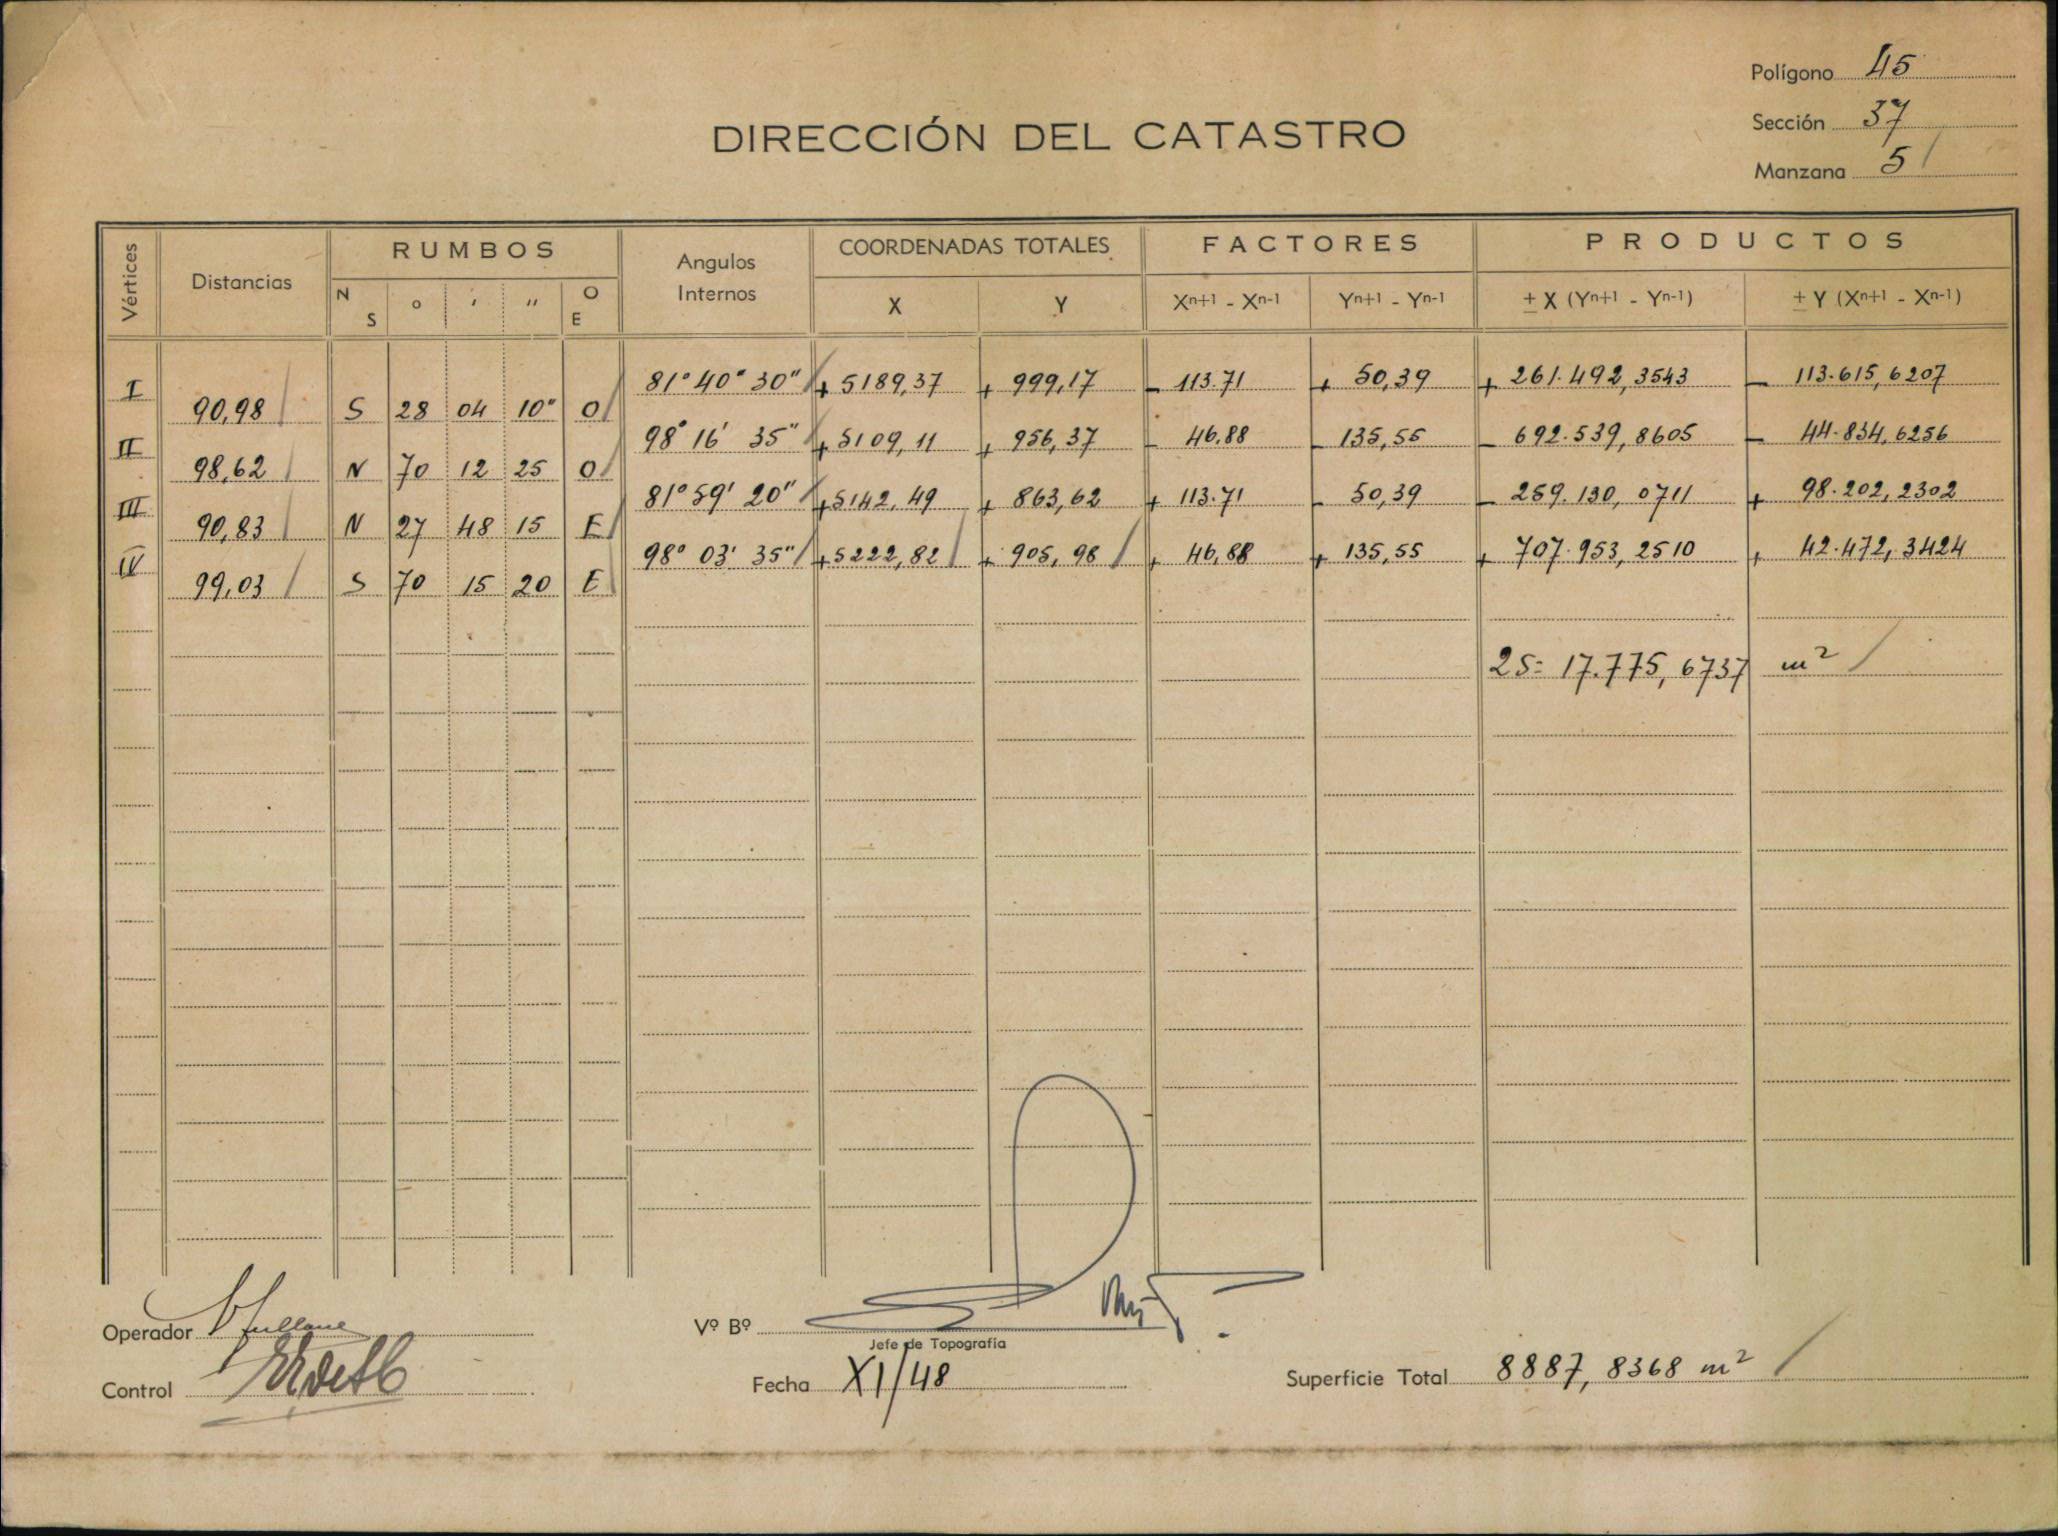 Polígono 45
DIRECCIÓN DEL CATASTRO
Sección 37
Manzana 5
Vértices Distancias RUMBOS Angulos Internos COORDENADAS TOTALES FACTORES PRODUCTOS
N S ° ' " O E X Y Xn+1 - Xn-1 Yn+1 - Yn-1 ± X (Yn+1 - Yn-1) ± Y (Xn+1 - Xn-1)
I 81° 40" 30" + 5189,37 + 999,17 - 113.71 + 50,39 + 261.492,3543 - 113.615,6207
90,98 S 28 04 10" O
II 98° 16' 35" + 5109,11 + 956,37 - 46.88 - 135,55 - 692.539,8605 - 44.834,6256
98,62 N 70 12 25 O
III 81° 59' 20" + 5142,49 + 863,62 + 113.71 - 50,39 - 259.130,0711 + 98.202,2302
90,83 N 27 48 15 E
IV 98° 03' 35" + 5222,82 + 905,98 + 46,88 + 135,55 + 707.953,2510 + 42.472,3424
99,03 S 70 15 20 E
2S= 17.775,6737 m²
Operador
Vº Bº
Jefe de Topografía
Control
Fecha XI/48
Superficie Total 8887,8368 m²